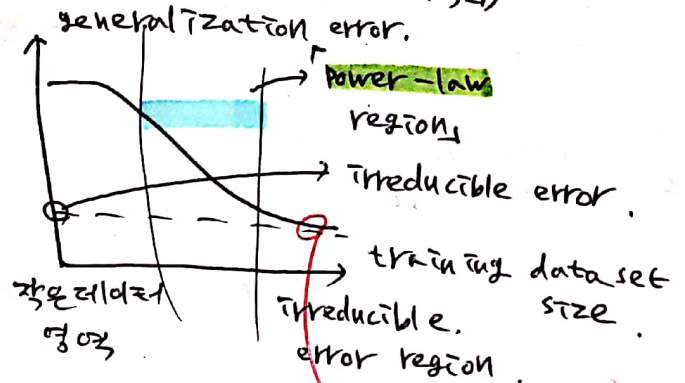 generalization error.
「power-law
region」
irreducible error.
training dataset
size.
작은데이터
영역
irreducible.
error region.